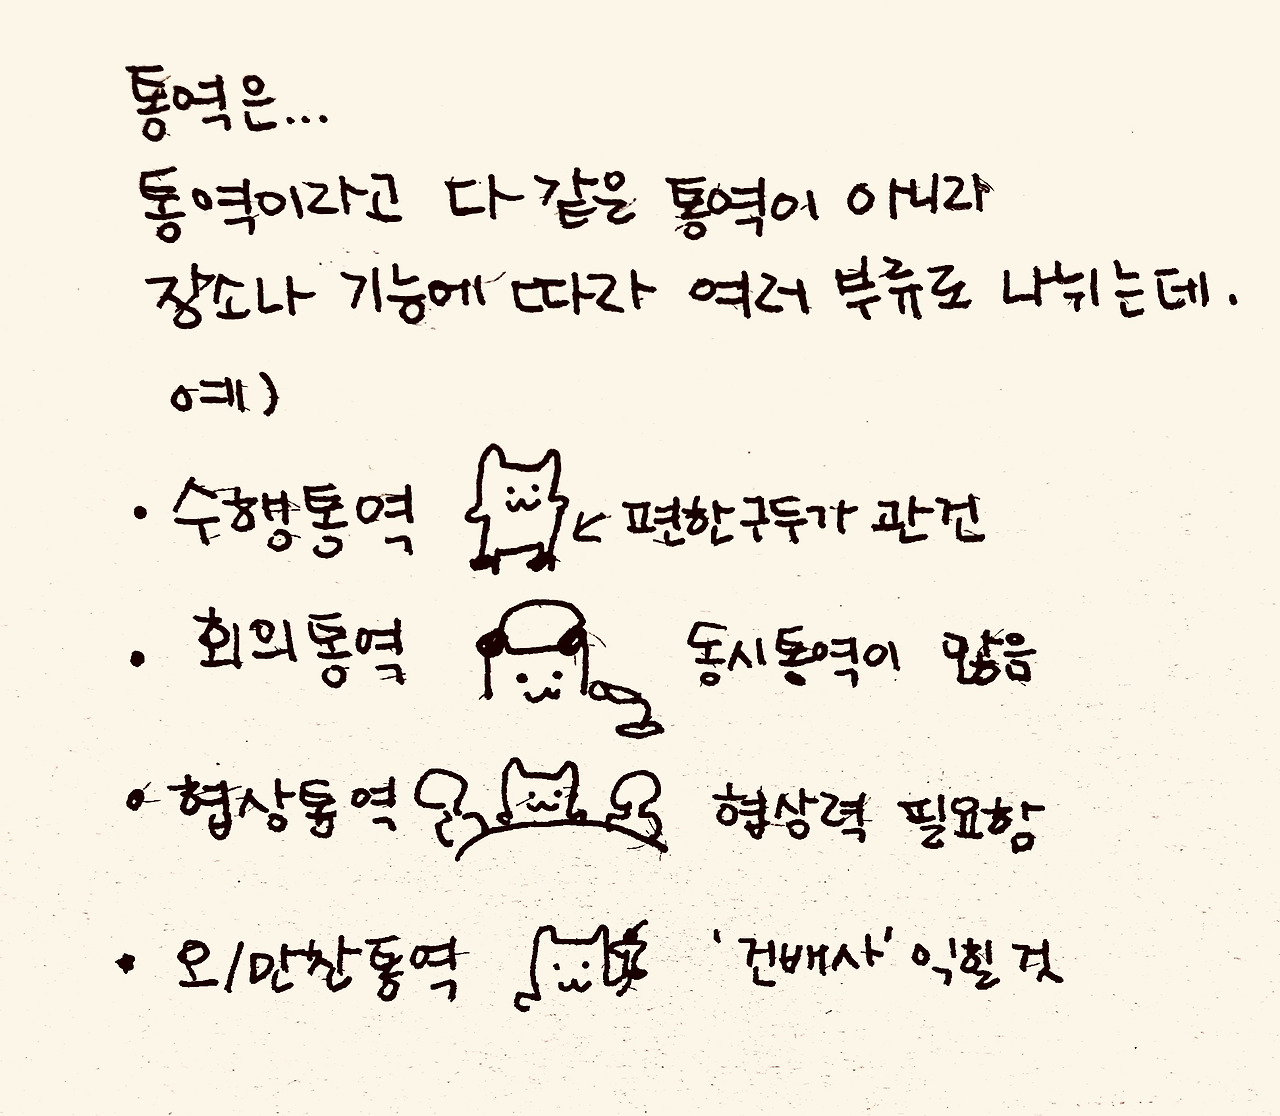 통역은...
통역이라고 다 같은 통역이 아니라
장소나 기능에 따라 여러 부류로 나뉘는데.
예)
• 수행통역 ← 편한구두가 관건
• 회의통역 동시통역이 많음
• 협상통역 협상력 필요함
• 오/만찬통역 '건배사' 익힐 것